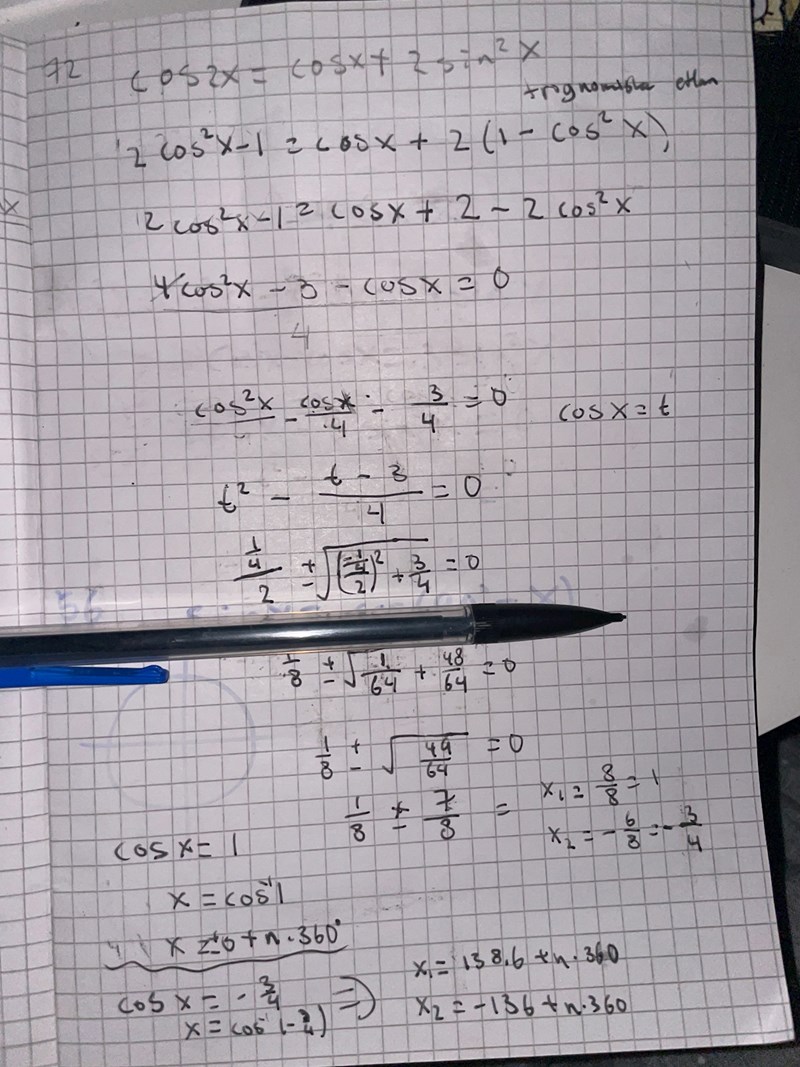 72 cos2x = cosx + 2 sin²x
trignometriska ettan
2 cos²x-1 = cosx + 2(1 - cos²x)
2 cos²x-1 = cosx + 2 - 2 cos²x
4cos²x - 3 - cosx = 0
4
cos²x - cosx/4 - 3/4 = 0 cosx = t
t² - (t - 3)/4 = 0
(1/4)/2 ± √(((-1/4)/2)² + 3/4) = 0
1/8 ± √(1/64 + 48/64) = 0
1/8 ± √(49/64) = 0
1/8 ± 7/8 = x₁ = 8/8 = 1
x₂ = -6/8 = -3/4
cosx = 1
x = cos⁻¹1
x = ±0 + n·360°
cosx = -3/4 ⇒ x₁ = 138,6 + n·360
x = cos⁻¹(-3/4) x₂ = -136 + n·360